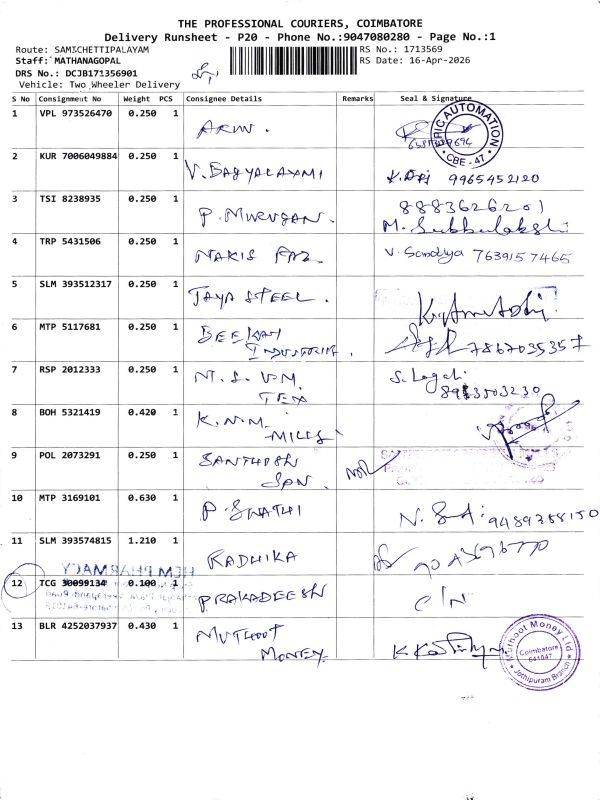 THE PROFESSIONAL COURIERS, COIMBATORE
Delivery Runsheet - P20 - Phone No.:9047080280 - Page No.:1
Route: SAMICHETTIPALAYAM RS No.: 1713569
Staff: MATHANAGOPAL RS Date: 16-Apr-2026
DRS No.: DCJB171356901
Vehicle: Two Wheeler Delivery
S No Consignment No Weight PCS Consignee Details Remarks Seal & Signature
1 VPL 973526470 0.250 1 ARUN. AUTOMATION CBE - 47
2 KUR 7006049884 0.250 1 V. BAGYALAXMI 9965452120
3 TSI 8238935 0.250 1 P. MURUGAN. 8883626201
M. Subbulakshi
4 TRP 5431506 0.250 1 NAKIS FAZ V. Sandiya 7639157465
5 SLM 393512317 0.250 1 JAYA STEEL.
6 MTP 5117681 0.250 1 BEEKAY 7867035357
INDUSTORIES.
7 RSP 2012333 0.250 1 N. S. V. M.
TEX
8 BOH 5321419 0.420 1 K.N.M.
MILLS
9 POL 2073291 0.250 1 SANTHOSH
SON
10 MTP 3169101 0.630 1 P. SWATHI 9489788150
11 SLM 393574815 1.210 1 RADHIKA
HEM PHARMACY
12 TCG 30099134 0.100 1 PRAKADEESH C/N
13 BLR 4252037937 0.430 1 MUTHOOT Muthoot Money Ltd
MONEY. Coimbatore
641047
Jothipuram Branch